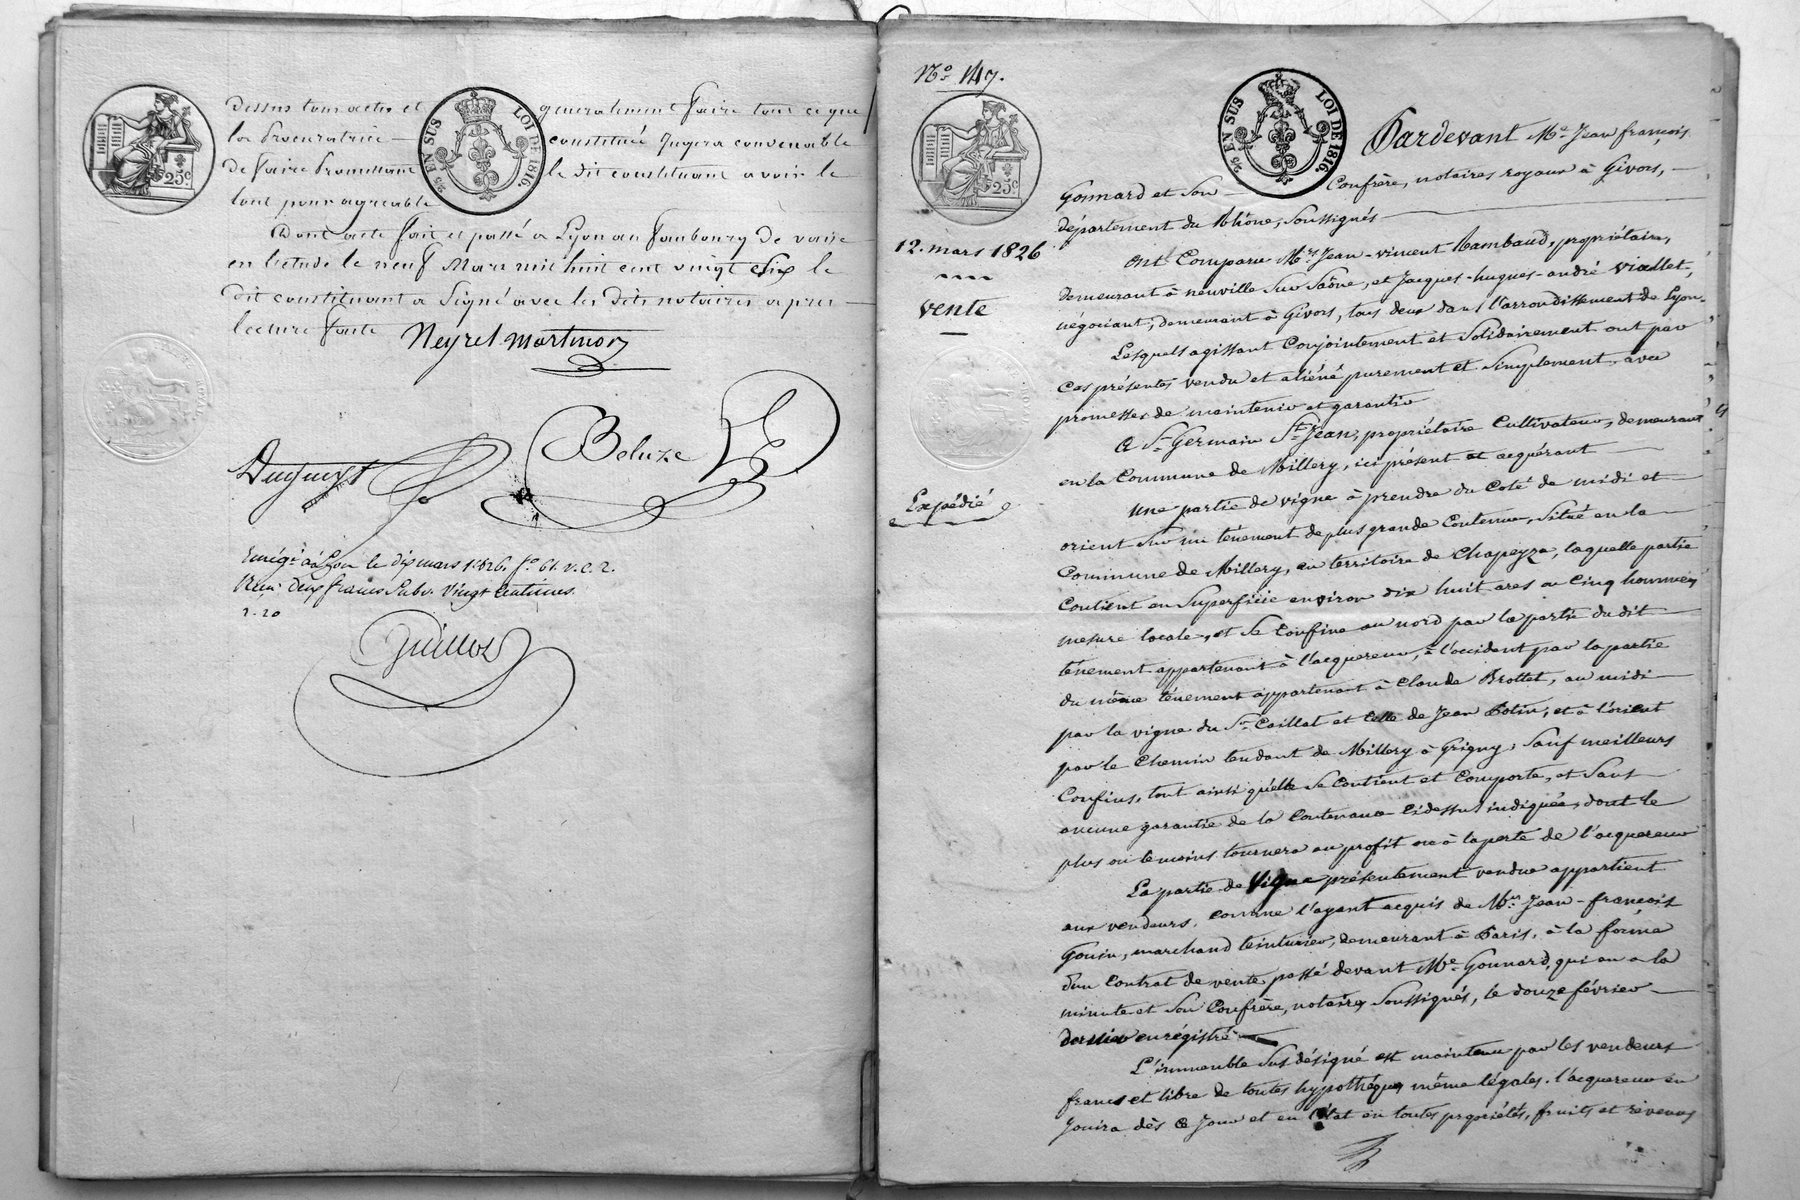 dessus tous actes et généralement faire tout ce que
la Procuratrice constituée Jugera convenable
de faire Promettant le dit constituant avoir le
tout pour agréable
Dont acte fait et passé a Lyon au faubourg de vaise
en l'etude le neuf Mars mil huit cent vingt Six le
dit constituant a Signé avec les dits notaires apres
lecture faite
Neyret Martinon
25 EN SUS LOI DE 1816.
25c
Beluze
Enrég.é à Lyon le dix mars 1826. f.o 61. v. C. 2.
Reçu deux francs Subv. Vingt Centimes.
2.20
Guillot
N.o 147.
25 EN SUS LOI DE 1816.
25c
12. mars 1826
vente
Expédié
Pardevant M.e Jean françois
Gonnard et Son Confrère, notaires royaux à Givors,
département du Rhône, Soussignés
Ont Comparu M.rs Jean-vincent Rambaud, propriétaire,
demeurant à neuville Sur Saône, et Jacques-hugues-andré Viallet,
négociant, demeurant à Givors, tous deux dans l'arrondissement de Lyon.
Lesquels agissant Conjointement et Solidairement ont par
Ces présentes vendu et aliéné purement et Simplement, avec
promesses de maintenir et garantir
A S.r Germain S.t Jean, propriétaire Cultivateur, demeurant
en la Commune de Millery, ici présent et acquérant
Une partie de vigne à prendre du Coté de midi et
orient Sur un ténement de plus grande Contenue, Situé en la
Commune de Millery, au territoire de Chapeyza, laquelle partie
Contient en Superficie environ dix huit ares ou Cinq hommées
mesure locale, et Se Confine au nord par la partie du dit
ténement appartenant à l'acquereur, à l'occident par la partie
du même ténement appartenant à Claude Brottet, au midi
par la vigne du S.r Caillat et Celle de Jean Botin, et à l'orient
par le Chemin tendant de Millery à Grigny, Sauf meilleurs
Confins, tout ainsi qu'elle Se Contient et Comporte, et Sans
aucune garantie de la Contenance Cidessus indiquée, dont le
plus ou le moins tournera au profit ou à la perte de l'acquereur
La partie de Vigne présentement vendue appartient
aux vendeurs, comme l'ayant acquis de M.r Jean-françois
Gouin, marchand teinturier, demeurant à Paris, à la forme
d'un Contrat de vente passé devant M.e Gonnard, qui en a la
minute et Son Confrère, notaires Soussignés, le douze février
dernier enrégistré
L'immeuble Sus désigné est maintenu par les vendeurs
franc et libre de toutes hypothéques même légales. l'acquereur en
Jouira dès Ce Jour et en l'état en toutes propriétés, fruits et revenus